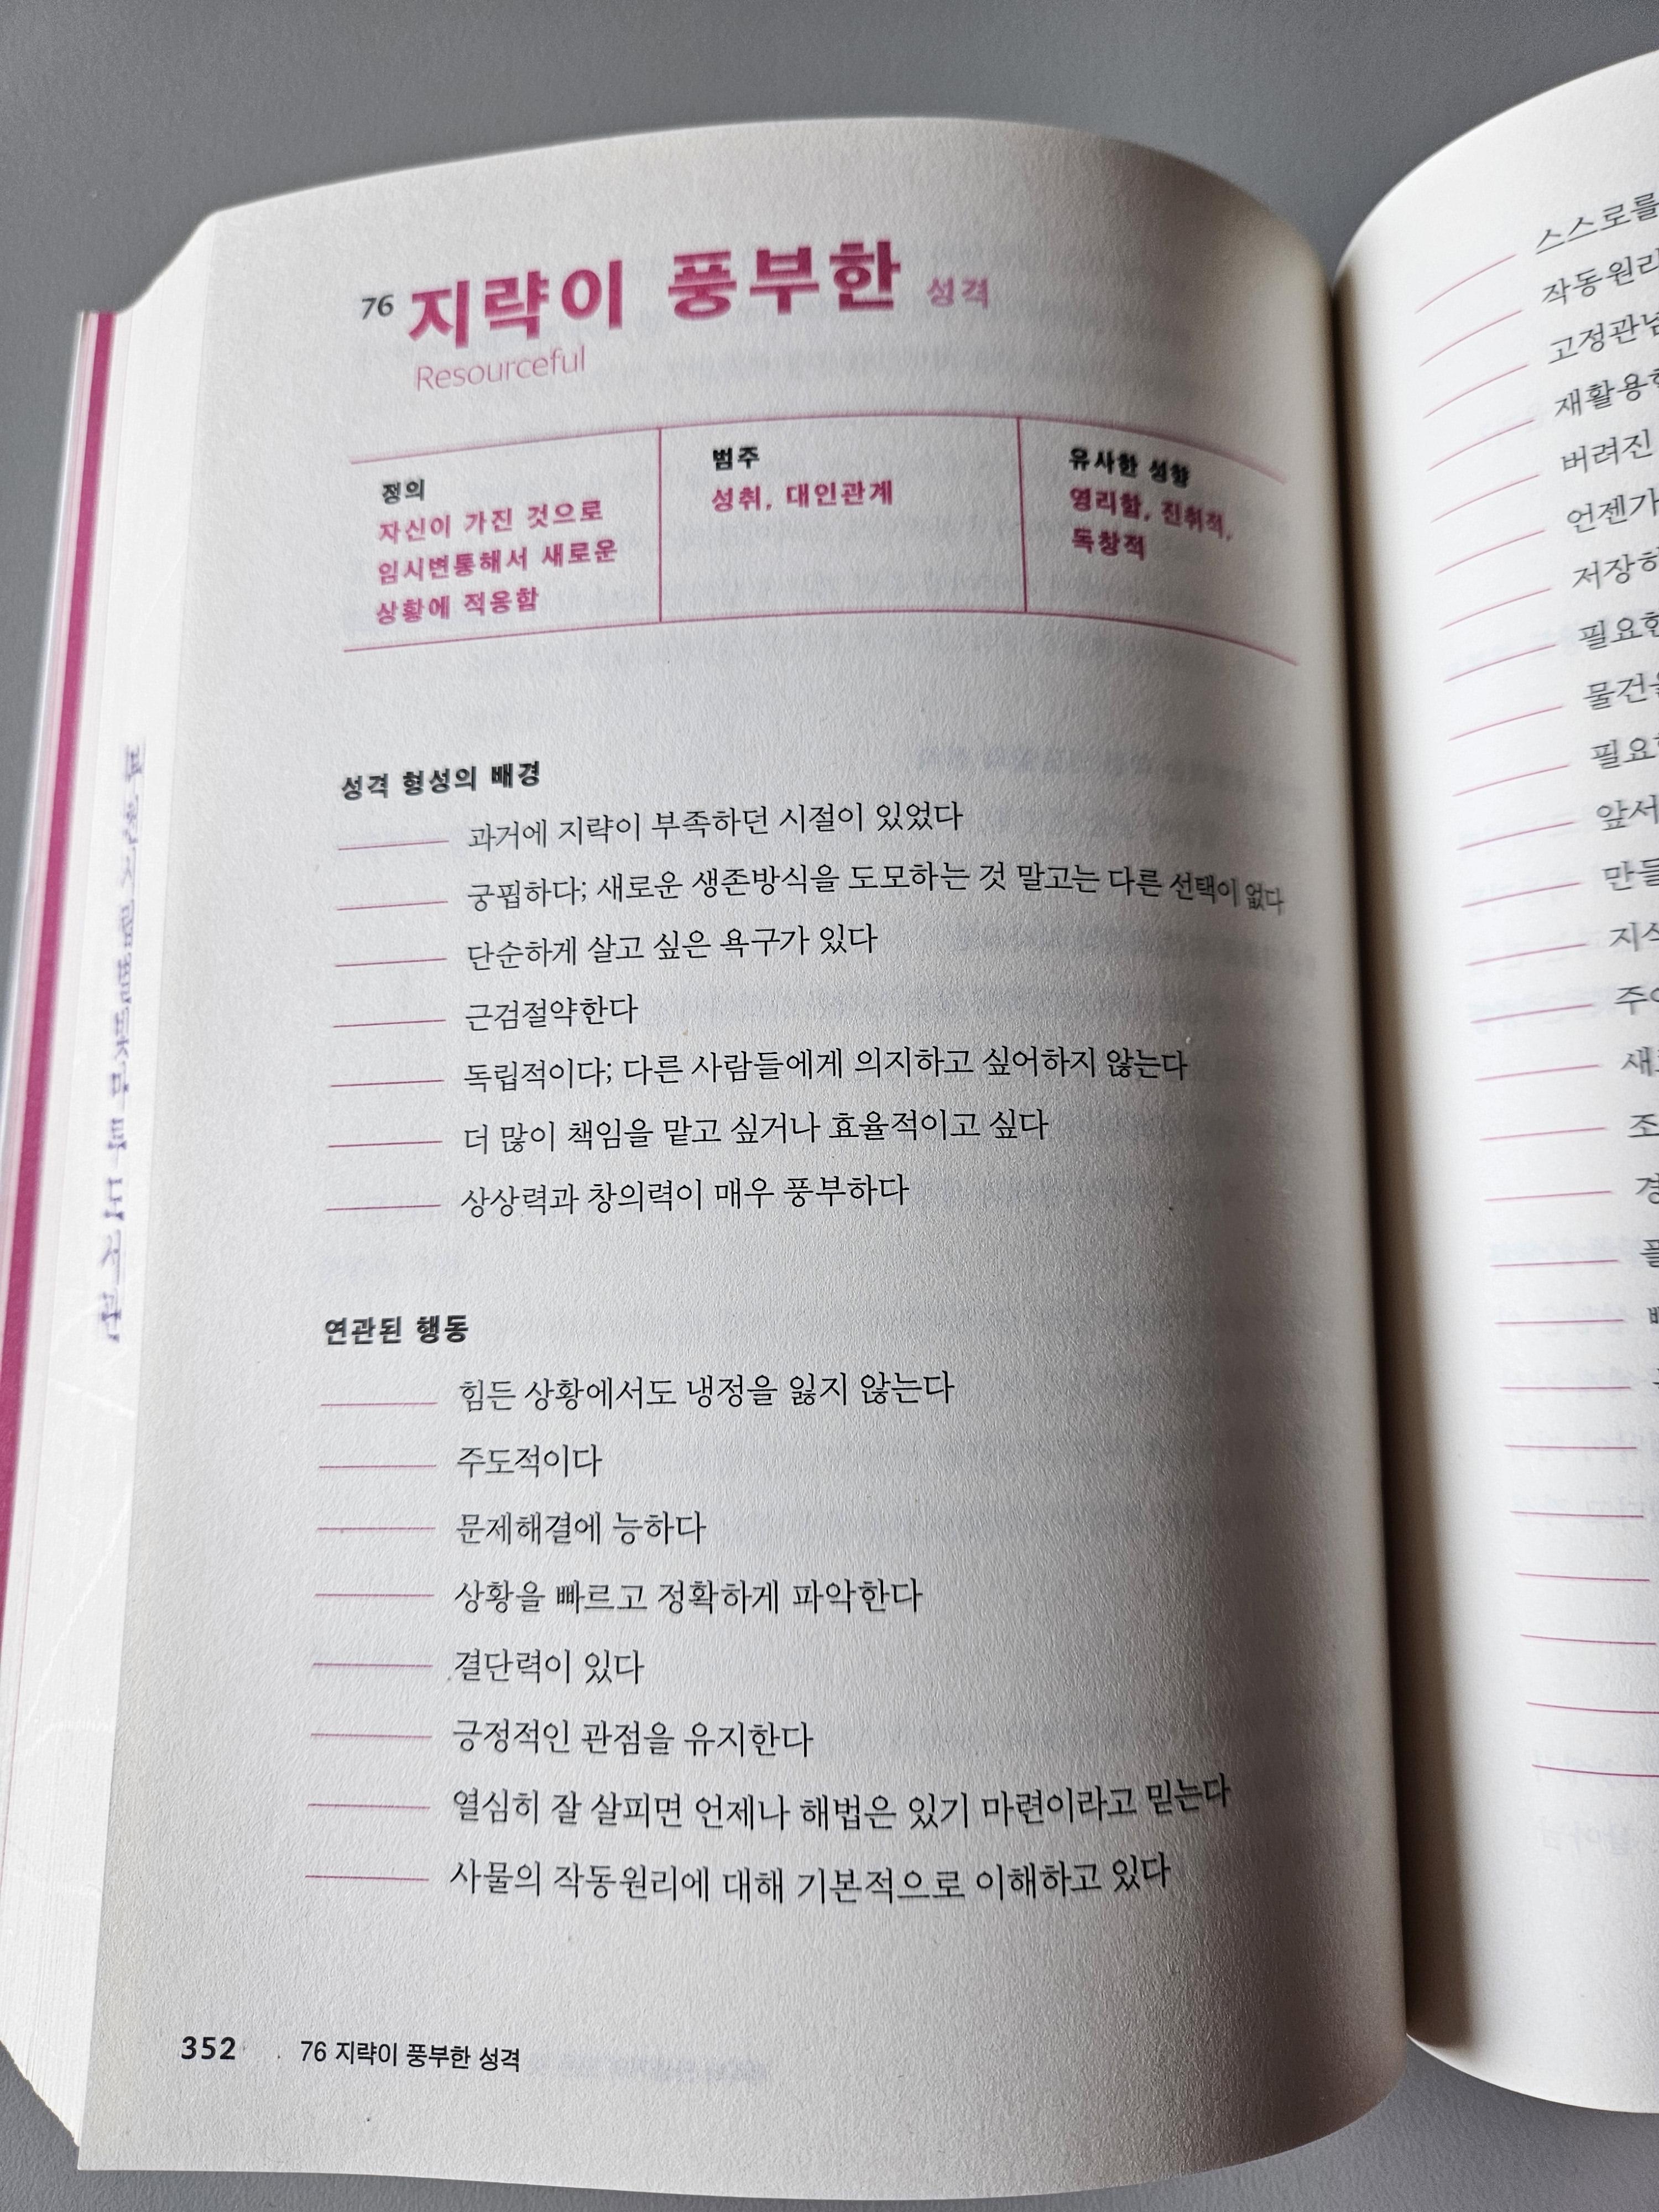 76 지략이 풍부한 성격
Resourceful
정의
자신이 가진 것으로
임시변통해서 새로운
상황에 적응함
범주
성취, 대인관계
유사한 성향
영리함, 진취적,
독창적
성격 형성의 배경
과거에 지략이 부족하던 시절이 있었다
궁핍하다; 새로운 생존방식을 도모하는 것 말고는 다른 선택이 없다
단순하게 살고 싶은 욕구가 있다
근검절약한다
독립적이다; 다른 사람들에게 의지하고 싶어하지 않는다
더 많이 책임을 맡고 싶거나 효율적이고 싶다
상상력과 창의력이 매우 풍부하다
연관된 행동
힘든 상황에서도 냉정을 잃지 않는다
주도적이다
문제해결에 능하다
상황을 빠르고 정확하게 파악한다
결단력이 있다
긍정적인 관점을 유지한다
열심히 잘 살피면 언제나 해법은 있기 마련이라고 믿는다
사물의 작동원리에 대해 기본적으로 이해하고 있다
352 76 지략이 풍부한 성격
스스로를
작동원리
재활용
버려진
언젠가
필요
앞서
만들